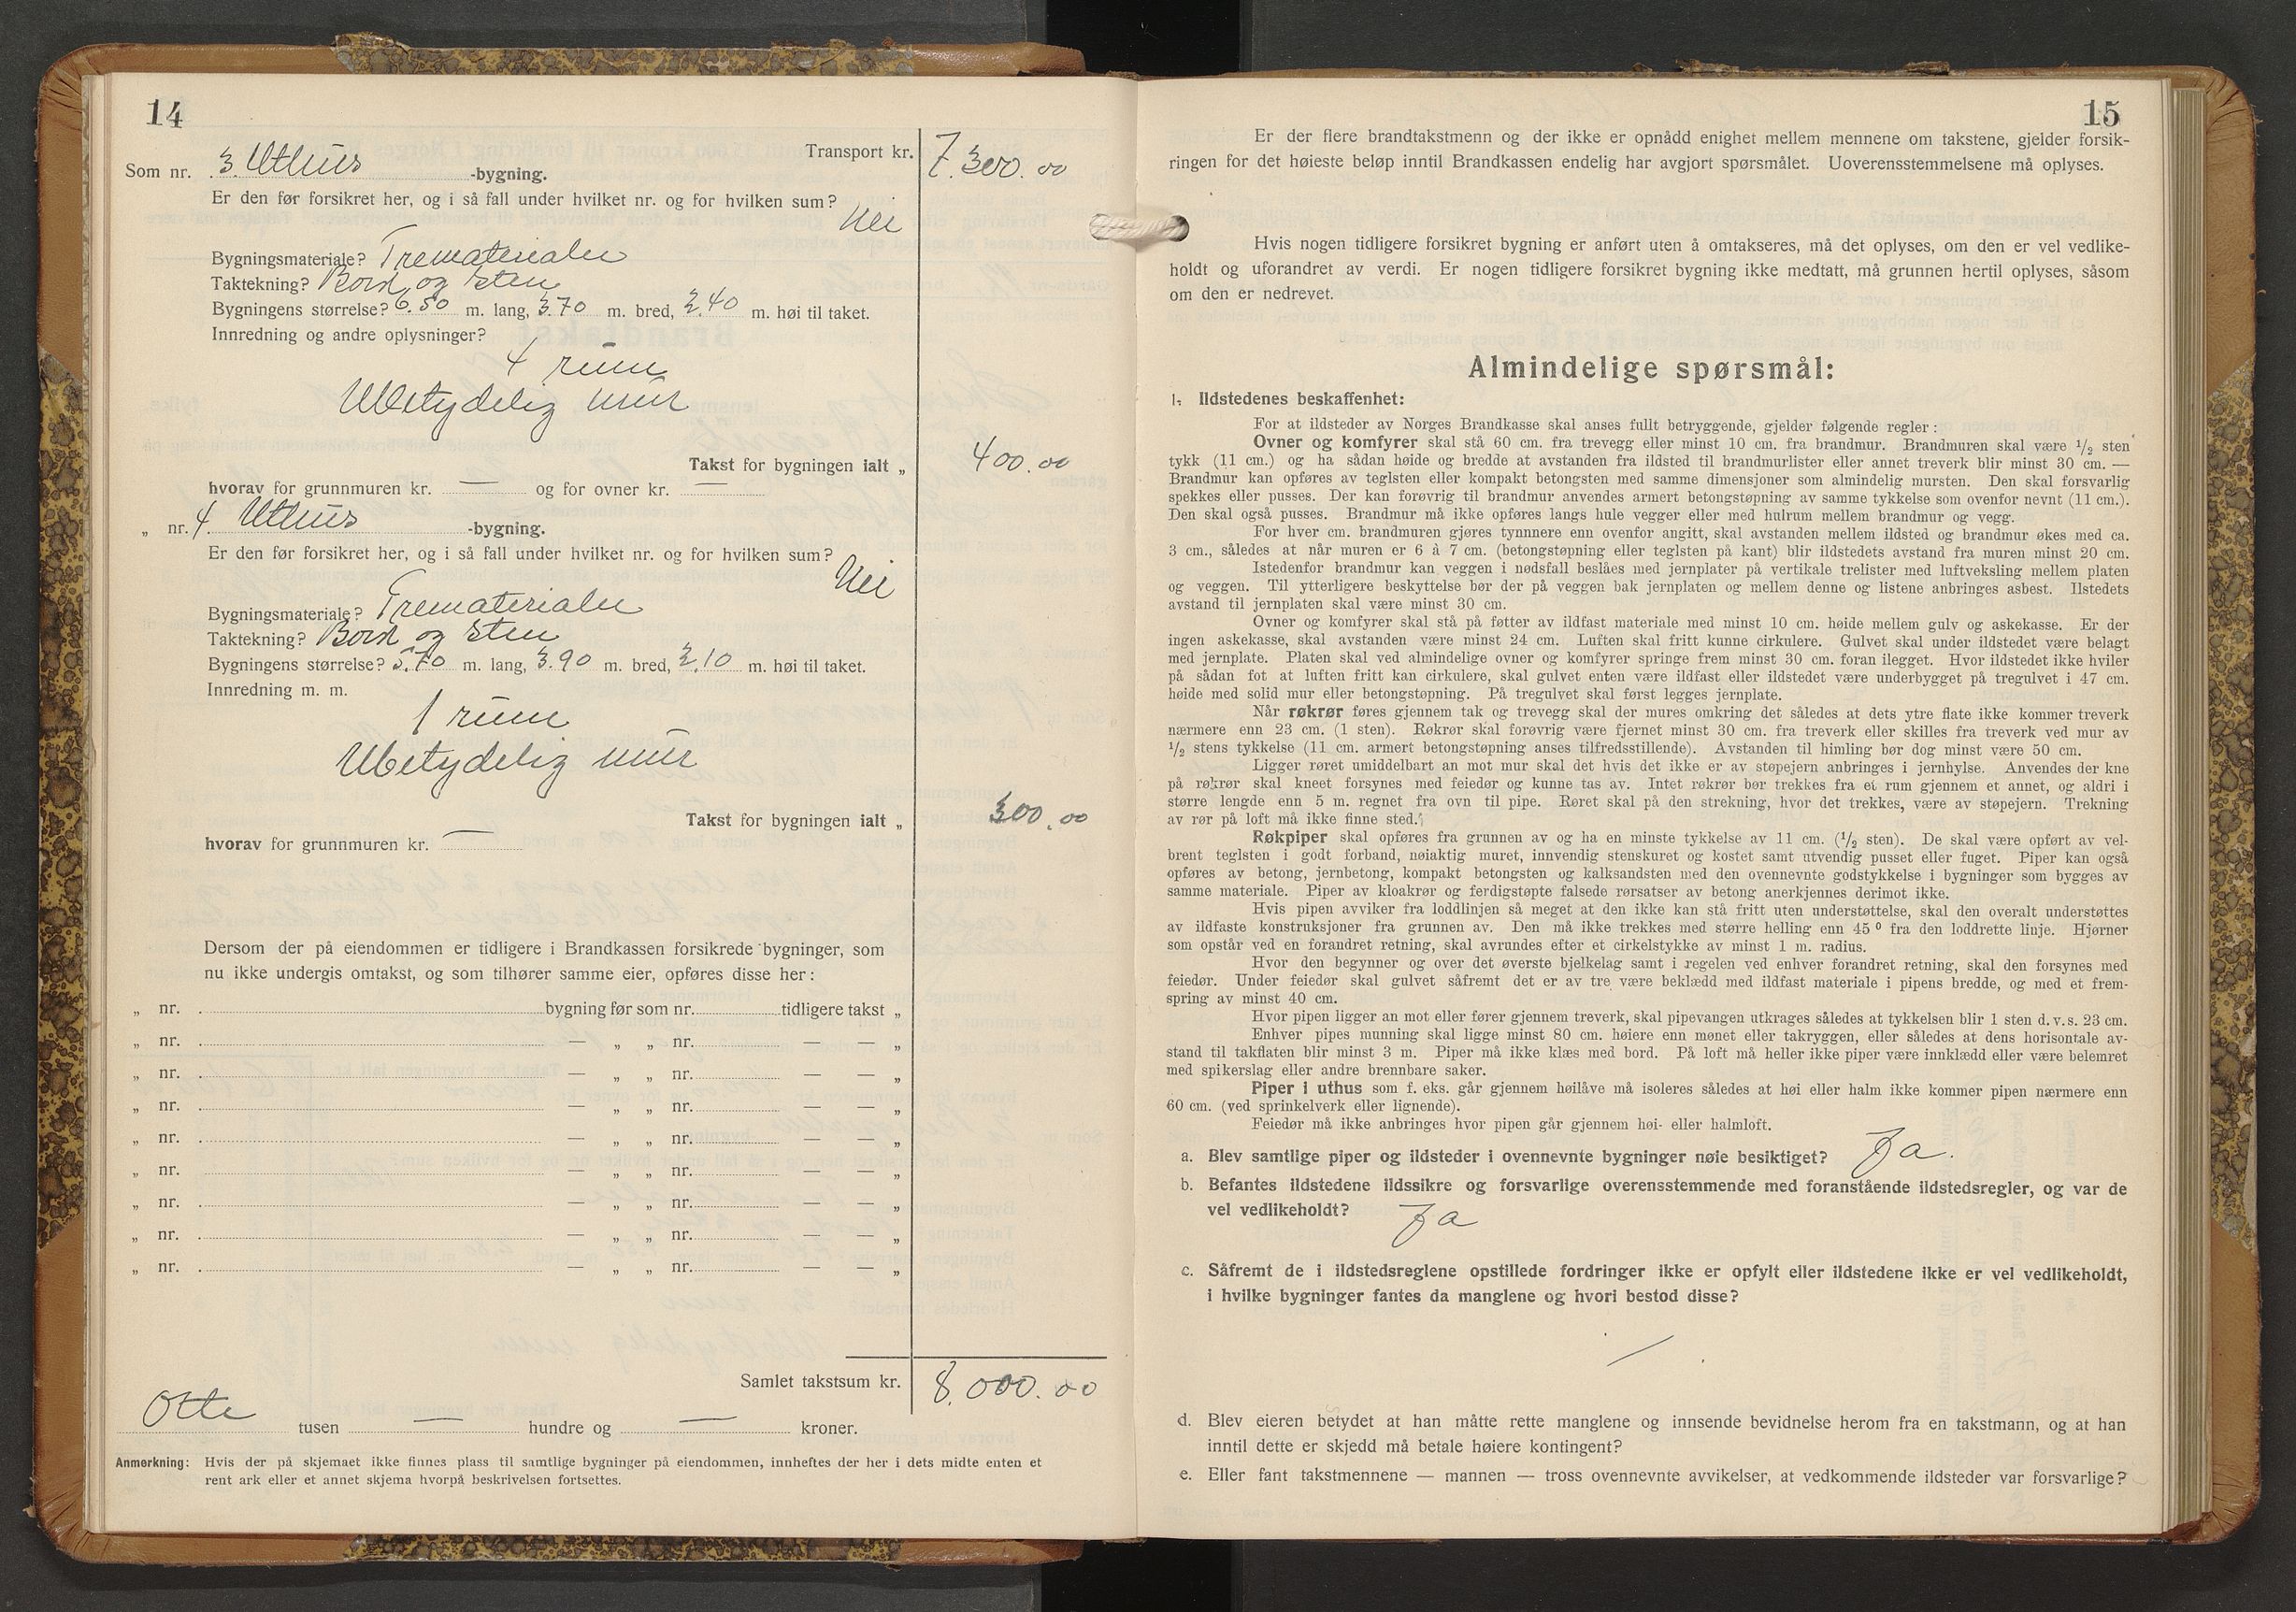 14
Transport kr. 7.300.00
Som nr. 3. Uthus -bygning.
Er den før forsikret her, og i så fall under hvilket nr. og for hvilken sum?
Nei
Bygningsmateriale? Trematerialer
Taktekning? Bord og sten
Bygningens størrelse? 6.50 m. lang, 3.70 m. bred, 2.40 m. høi til taket.
Innredning og andre oplysninger?
4 rum
Ubetydelig mur
Takst for bygningen ialt „ 400.00
hvorav for grunnmuren kr. — og for ovner kr. —
„ nr. 4. Uthus -bygning.
Er den før forsikret her, og i så fall under hvilket nr. og for hvilken sum?
Nei
Bygningsmateriale? Trematerialer
Taktekning? Bord og sten
Bygningens størrelse? 5.70 m. lang, 3.90 m. bred, 2.10 m. høi til taket.
Innredning m. m.
1 rum
Ubetydelig mur
Takst for bygningen ialt „ 300.00
hvorav for grunnmuren kr. —
Dersom der på eiendommen er tidligere i Brandkassen forsikrede bygninger, som
nu ikke undergis omtakst, og som tilhører samme eier, opføres disse her:
„ nr. bygning før som nr. tidligere takst „
„ nr. — „ „ nr. — — „
„ nr. — „ „ nr. — — „
„ nr. — „ „ nr. — — „
„ nr. — „ „ nr. — — „
„ nr. — „ „ nr. — — „
„ nr. — „ „ nr. — — „
„ nr. — „ „ nr. — — „
„ nr. — „ „ nr. — — „
Samlet takstsum kr. 8.000.00
Otte tusen — hundre og — kroner.
Anmerkning: Hvis der på skjemaet ikke finnes plass til samtlige bygninger på eiendommen, innheftes der her i dets midte enten et
rent ark eller et annet skjema hvorpå beskrivelsen fortsettes.
15
Er der flere brandtakstmenn og der ikke er opnådd enighet mellem mennene om takstene, gjelder forsik-
ringen for det høieste beløp inntil Brandkassen endelig har avgjort spørsmålet. Uoverensstemmelsene må oplyses.
Hvis nogen tidligere forsikret bygning er anført uten å omtakseres, må det oplyses, om den er vel vedlike-
holdt og uforandret av verdi. Er nogen tidligere forsikret bygning ikke medtatt, må grunnen hertil oplyses, såsom
om den er nedrevet.
Almindelige spørsmål:
1. Ildstedenes beskaffenhet:
For at ildsteder av Norges Brandkasse skal anses fullt betryggende, gjelder følgende regler:
Ovner og komfyrer skal stå 60 cm. fra trevegg eller minst 10 cm. fra brandmur. Brandmuren skal være ½ sten
tykk (11 cm.) og ha sådan høide og bredde at avstanden fra ildsted til brandmurlister eller annet treverk blir minst 30 cm. —
Brandmur kan opføres av teglsten eller kompakt betongsten med samme dimensjoner som almindelig mursten. Den skal forsvarlig
spekkes eller pusses. Der kan forøvrig til brandmur anvendes armert betongstøpning av samme tykkelse som ovenfor nevnt (11 cm.).
Den skal også pusses. Brandmur må ikke opføres langs hule vegger eller med hulrum mellem brandmur og vegg.
For hver cm. brandmuren gjøres tynnnere enn ovenfor angitt, skal avstanden mellem ildsted og brandmur økes med ca.
3 cm., således at når muren er 6 à 7 cm. (betongstøpning eller teglsten på kant) blir ildstedets avstand fra muren minst 20 cm.
Istedenfor brandmur kan veggen i nødsfall beslåes med jernplater på vertikale trelister med luftveksling mellem platen
og veggen. Til ytterligere beskyttelse bør der på veggen bak jernplaten og mellem denne og listene anbringes asbest. Ilstedets
avstand til jernplaten skal være minst 30 cm.
Ovner og komfyrer skal stå på føtter av ildfast materiale med minst 10 cm. høide mellem gulv og askekasse. Er der
ingen askekasse, skal avstanden være minst 24 cm. Luften skal fritt kunne cirkulere. Gulvet skal under ildstedet være belagt
med jernplate. Platen skal ved almindelige ovner og komfyrer springe frem minst 30 cm. foran ilegget. Hvor ildstedet ikke hviler
på sådan fot at luften fritt kan cirkulere, skal gulvet enten være ildfast eller ildstedet være underbygget på tregulvet i 47 cm.
høide med solid mur eller betongstøpning. På tregulvet skal først legges jernplate.
Når røkrør føres gjennem tak og trevegg skal der mures omkring det således at dets ytre flate ikke kommer treverk
nærmere enn 23 cm. (1 sten). Røkrør skal forøvrig være fjernet minst 30 cm. fra treverk eller skilles fra treverk ved mur av
½ stens tykkelse (11 cm. armert betongstøpning anses tilfredsstillende). Avstanden til himling bør dog minst være 50 cm.
Ligger røret umiddelbart an mot mur skal det hvis det ikke er av støpejern anbringes i jernhylse. Anvendes der kne
på røkrør skal kneet forsynes med feiedør og kunne tas av. Intet røkrør bør trekkes fra et rum gjennem et annet, og aldri i
større lengde enn 5 m. regnet fra ovn til pipe. Røret skal på den strekning, hvor det trekkes, være av støpejern. Trekning
av rør på loft må ikke finne sted.
Røkpiper skal opføres fra grunnen av og ha en minste tykkelse av 11 cm. (½ sten). De skal være opført av vel-
brent teglsten i godt forband, nøiaktig muret, innvendig stenskuret og kostet samt utvendig pusset eller fuget. Piper kan også
opføres av betong, jernbetong, kompakt betongsten og kalksandsten med den ovennevnte godstykkelse i bygninger som bygges av
samme materiale. Piper av kloakrør og ferdigstøpte falsede rørsatser av betong anerkjennes derimot ikke.
Hvis pipen avviker fra loddlinjen så meget at den ikke kan stå fritt uten understøttelse, skal den overalt understøttes
av ildfaste konstruksjoner fra grunnen av. Den må ikke trekkes med større helling enn 45⁰ fra den loddrette linje. Hjørner
som opstår ved en forandret retning, skal avrundes efter et cirkelstykke av minst 1 m. radius.
Hvor den begynner og over det øverste bjelkelag samt i regelen ved enhver forandret retning, skal den forsynes med
feiedør. Under feiedør skal gulvet såfremt det er av tre være beklædd med ildfast materiale i pipens bredde, og med et frem-
spring av minst 40 cm.
Hvor pipen ligger an mot eller fører gjennem treverk, skal pipevangen utkrages således at tykkelsen blir 1 sten d.v.s. 23 cm.
Enhver pipes munning skal ligge minst 80 cm. høiere enn mønet eller takryggen, eller således at dens horisontale av-
stand til takflaten blir minst 3 m. Piper må ikke klæs med bord. På loft må heller ikke piper være innklædd eller være belemret
med spikerslag eller andre brennbare saker.
Piper i uthus som f. eks. går gjennem høilåve må isoleres således at høi eller halm ikke kommer pipen nærmere enn
60 cm. (ved sprinkelverk eller lignende).
Feiedør må ikke anbringes hvor pipen går gjennem høi- eller halmloft.
a. Blev samtlige piper og ildsteder i ovennevnte bygninger nøie besiktiget? Ja.
b. Befantes ildstedene ildssikre og forsvarlige overensstemmende med foranstående ildstedsregler, og var de
vel vedlikeholdt? Ja
c. Såfremt de i ildstedsreglene opstillede fordringer ikke er opfylt eller ildstedene ikke er vel vedlikeholdt,
i hvilke bygninger fantes da manglene og hvori bestod disse?
—
d. Blev eieren betydet at han måtte rette manglene og innsende bevidnelse herom fra en takstmann, og at han
inntil dette er skjedd må betale høiere kontingent?
e. Eller fant takstmennene — mannen — tross ovennevnte avvikelser, at vedkommende ildsteder var forsvarlige?